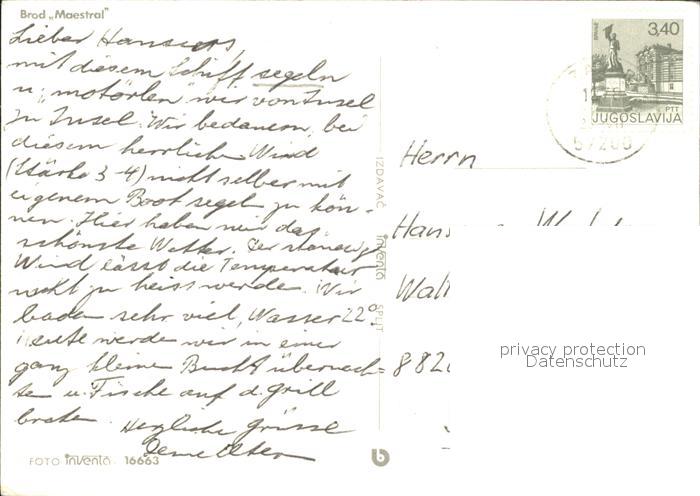 Brod „Maestral"
Lieber Hansues,
mit diesem Schiff segeln
u. "motörlen" wir von Insel
zu Insel. Wir bedauern, bei
diesem herrlichen Wind
(Stärke 3-4) nicht selber mit
eigenem Boot segeln zu kön-
nen. Hier haben wir das
schönste Wetter. Der ständige
Wind lässt die Temperatur
nicht zu heiss werden. Wir
baden sehr viel, Wasser 22°.
Heute werden wir in einer
ganz kleinen Bucht übernach=
ten u. Fische auf d. Grill
braten. Herzliche Grüsse
Deine Eltern
FOTO inventa 16663
IZDAVAČ inventa SPLIT
3,40
PTT
JUGOSLAVIJA
Herrn
Hans
Wal
882
privacy protection
Datenschutz